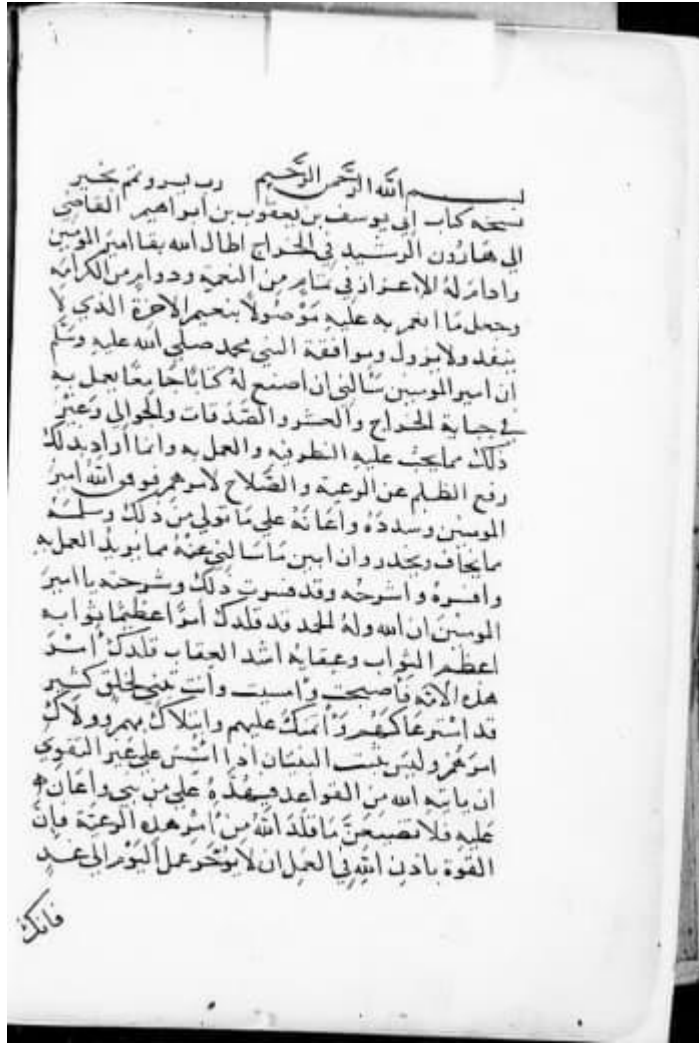 بسم الله الرحمن الرحيم رب يسر وتمم بخير
نسخة كتاب ابي يوسف بن يعقوب بن ابراهيم القاضي
الى هارون الرشيد في الخراج اطال الله بقا امير المومنين
وادام له الاعزاز في تمام من النعمة ودوام من الكرامه
وجعل ما انعم به عليه موصولا بنعيم الاخرة الذي لا
ينفد ولا يزول وموافقة النبي محمد صلى الله عليه وسلم
ان امير المومنين سالني ان اصنع له كتابا جامعا يعمل به
في جباية الخراج والعشر والصدقات والجوالي وغير
ذلك مما يجب عليه النظر فيه والعمل به وانما اراد بذلك
رفع الظلم عن الرعية والصلاح لامرهم فوفق الله امير
المومنين وسدده واعانه على ما تولي من ذلك وسلمه
مما يخاف ويحذر وان ابين ما سالني عنه مما يريد العمل به
وافسره واشرحه وقد فسرت ذلك وشرحته يا امير
المومنين ان الله وله الحمد قد قلدك امرا عظيما ثوابه
اعظم الثواب وعقابه اشد العقاب قلدك امر
هذه الامة فاصبحت وامسيت وانت تبني لخلق كثير
قد استرعاكهم وائتمنك عليهم وابتلاك بهم وولاك
امرهم وليس يثبت البنيان اذا اسس على غير التقوي
ان ياتيه الله من القواعد فيهدمه على من بني واعان
عليه فلا تضيعن ما قلدك الله من امر هذه الرعية فان
القوة باذن الله في العمل ان لا يوخر عمل اليوم الى غد
فانك